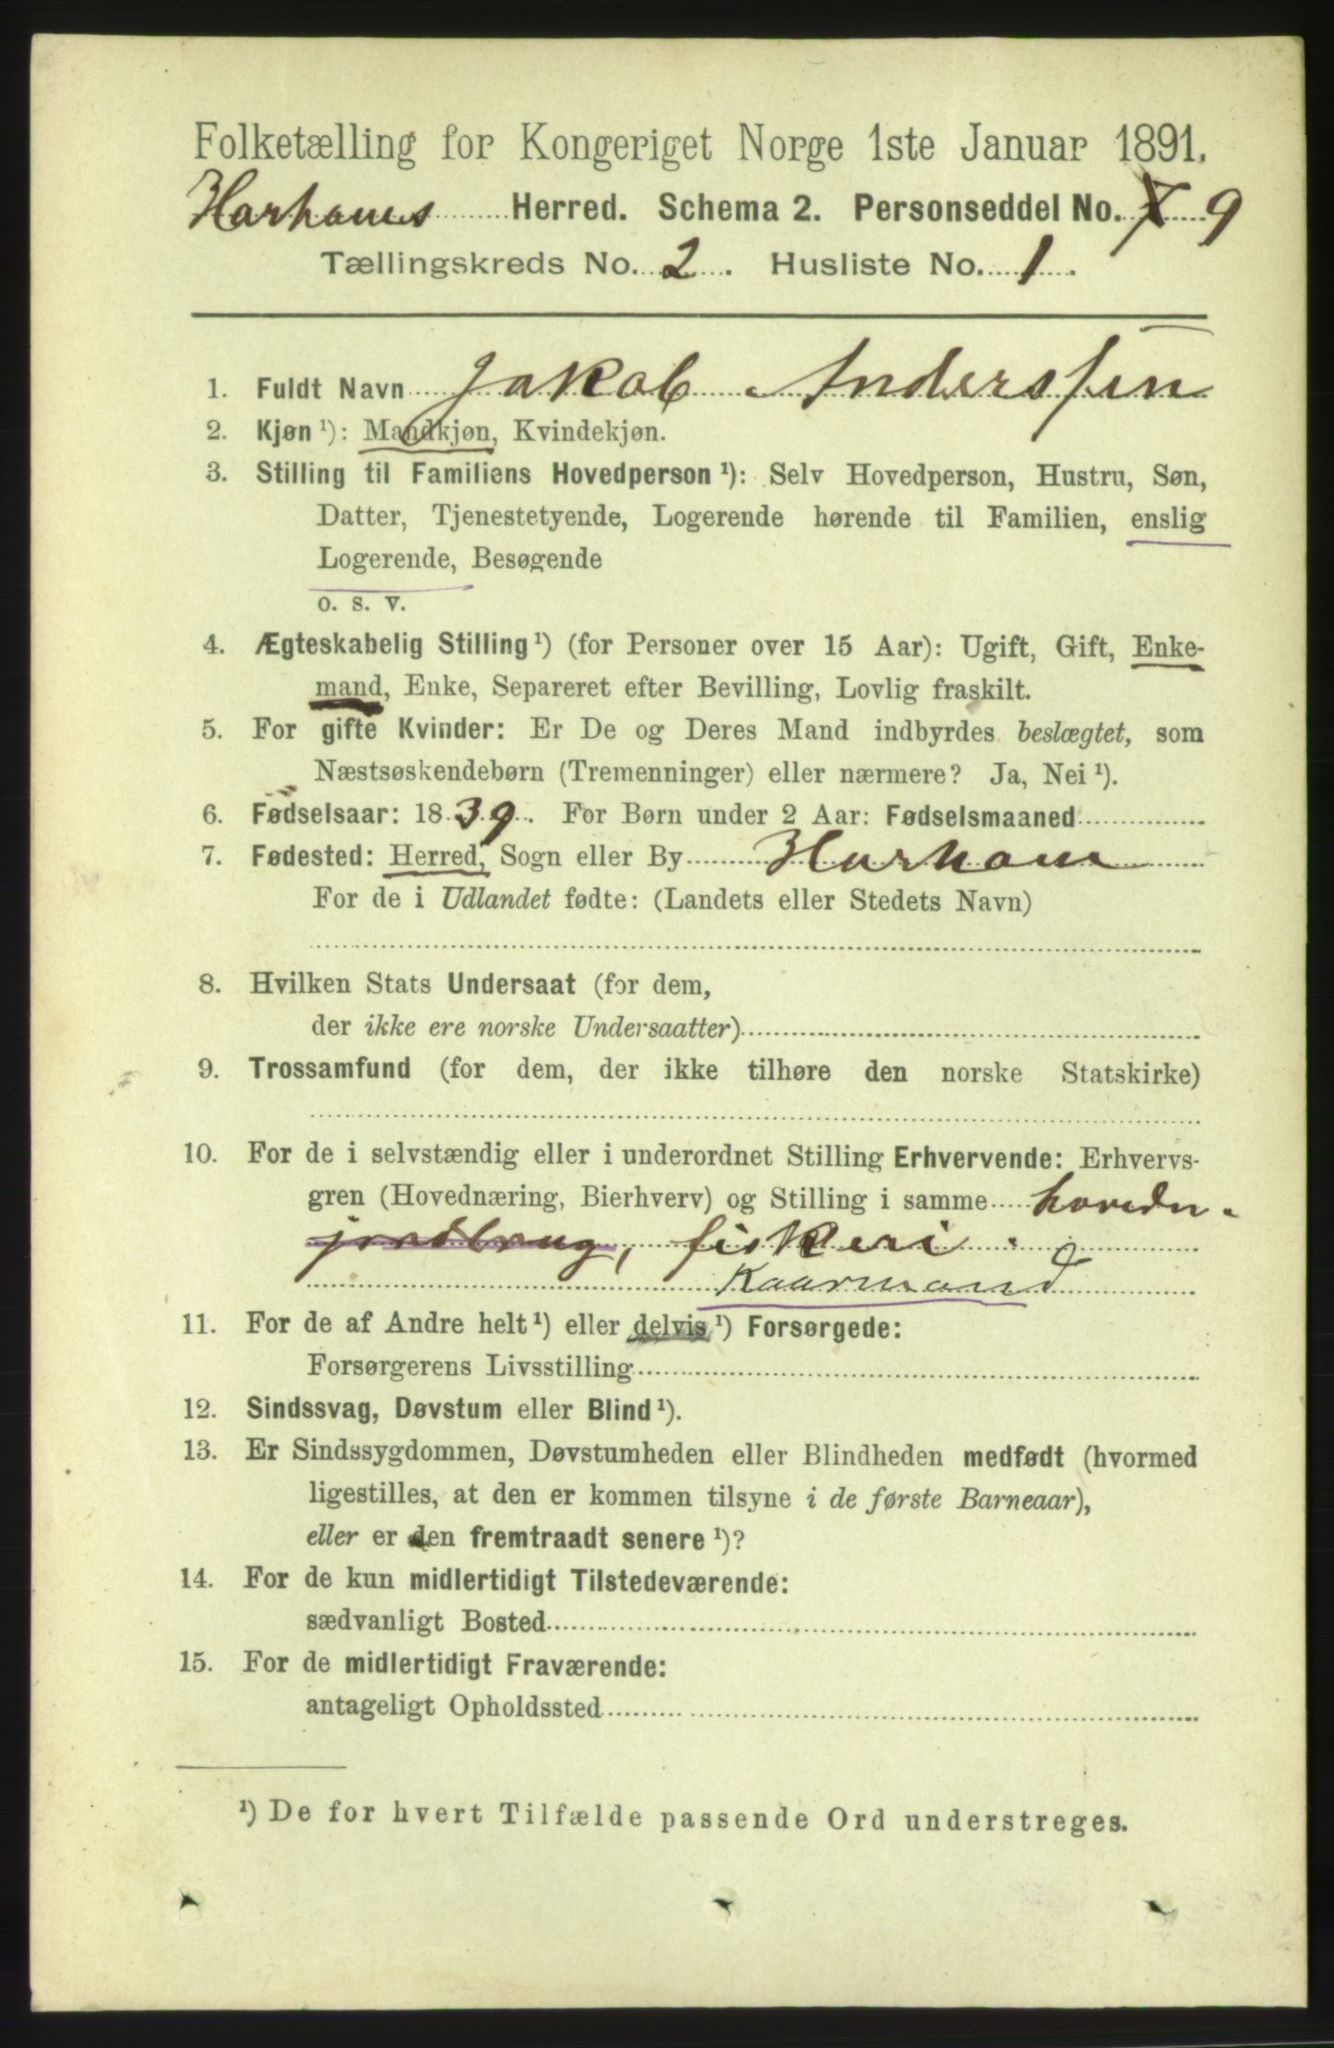 Folketælling for Kongeriget Norge 1ste Januar 1891.
Harhams Herred. Schema 2. Personseddel No. 9
Tællingskreds No. 2. Husliste No. 1.
1. Fuldt Navn Jakob Anderssen
2. Kjøn ¹): Mandkjøn, Kvindekjøn.
3. Stilling til Familiens Hovedperson ¹): Selv Hovedperson, Hustru, Søn,
Datter, Tjenestetyende, Logerende hørende til Familien, enslig
Logerende, Besøgende
o. s. v.
4. Ægteskabelig Stilling ¹) (for Personer over 15 Aar): Ugift, Gift, Enke-
mand, Enke, Separeret efter Bevilling, Lovlig fraskilt.
5. For gifte Kvinder: Er De og Deres Mand indbyrdes beslægtet, som
Næstsøskendebørn (Tremenninger) eller nærmere? Ja, Nei ¹).
6. Fødselsaar: 1839. For Børn under 2 Aar: Fødselsmaaned
7. Fødested: Herred, Sogn eller By Harham
For de i Udlandet fødte: (Landets eller Stedets Navn)
8. Hvilken Stats Undersaat (for dem,
der ikke ere norske Undersaatter)
9. Trossamfund (for dem, der ikke tilhøre den norske Statskirke)
10. For de i selvstændig eller i underordnet Stilling Erhvervende: Erhvervs-
gren (Hovednæring, Bierhverv) og Stilling i samme hovedn.
jordbrug, fiskeri.
Kaarmand
11. For de af Andre helt ¹) eller delvis ¹) Forsørgede:
Forsørgerens Livsstilling
12. Sindssvag, Døvstum eller Blind ¹).
13. Er Sindssygdommen, Døvstumheden eller Blindheden medfødt (hvormed
ligestilles, at den er kommen tilsyne i de første Barneaar),
eller er den fremtraadt senere ¹)?
14. For de kun midlertidigt Tilstedeværende:
sædvanligt Bosted
15. For de midlertidigt Fraværende:
antageligt Opholdssted
¹) De for hvert Tilfælde passende Ord understreges.